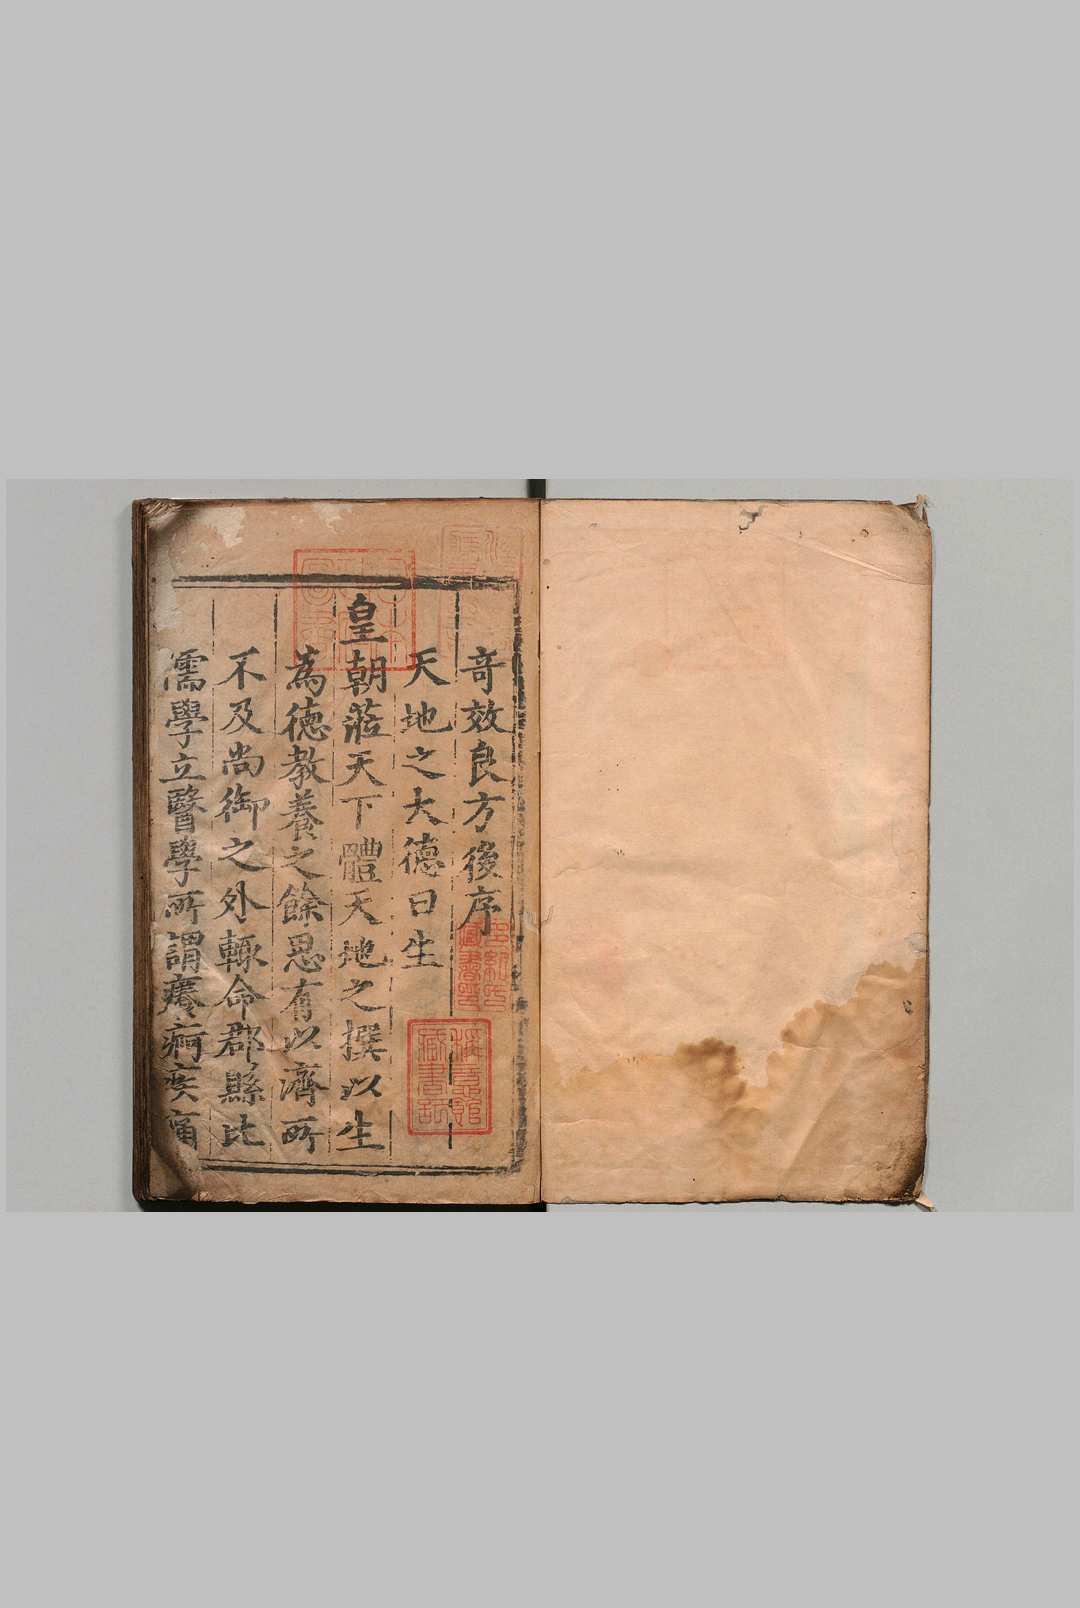 奇效良方後序
天地之大德曰生
皇朝蒞天下體天地之撰以生
為德教養之餘思有以濟所
不及尚御之外輙命郡縣比
儒學立醫學所謂癢痾疾痛
藏書記